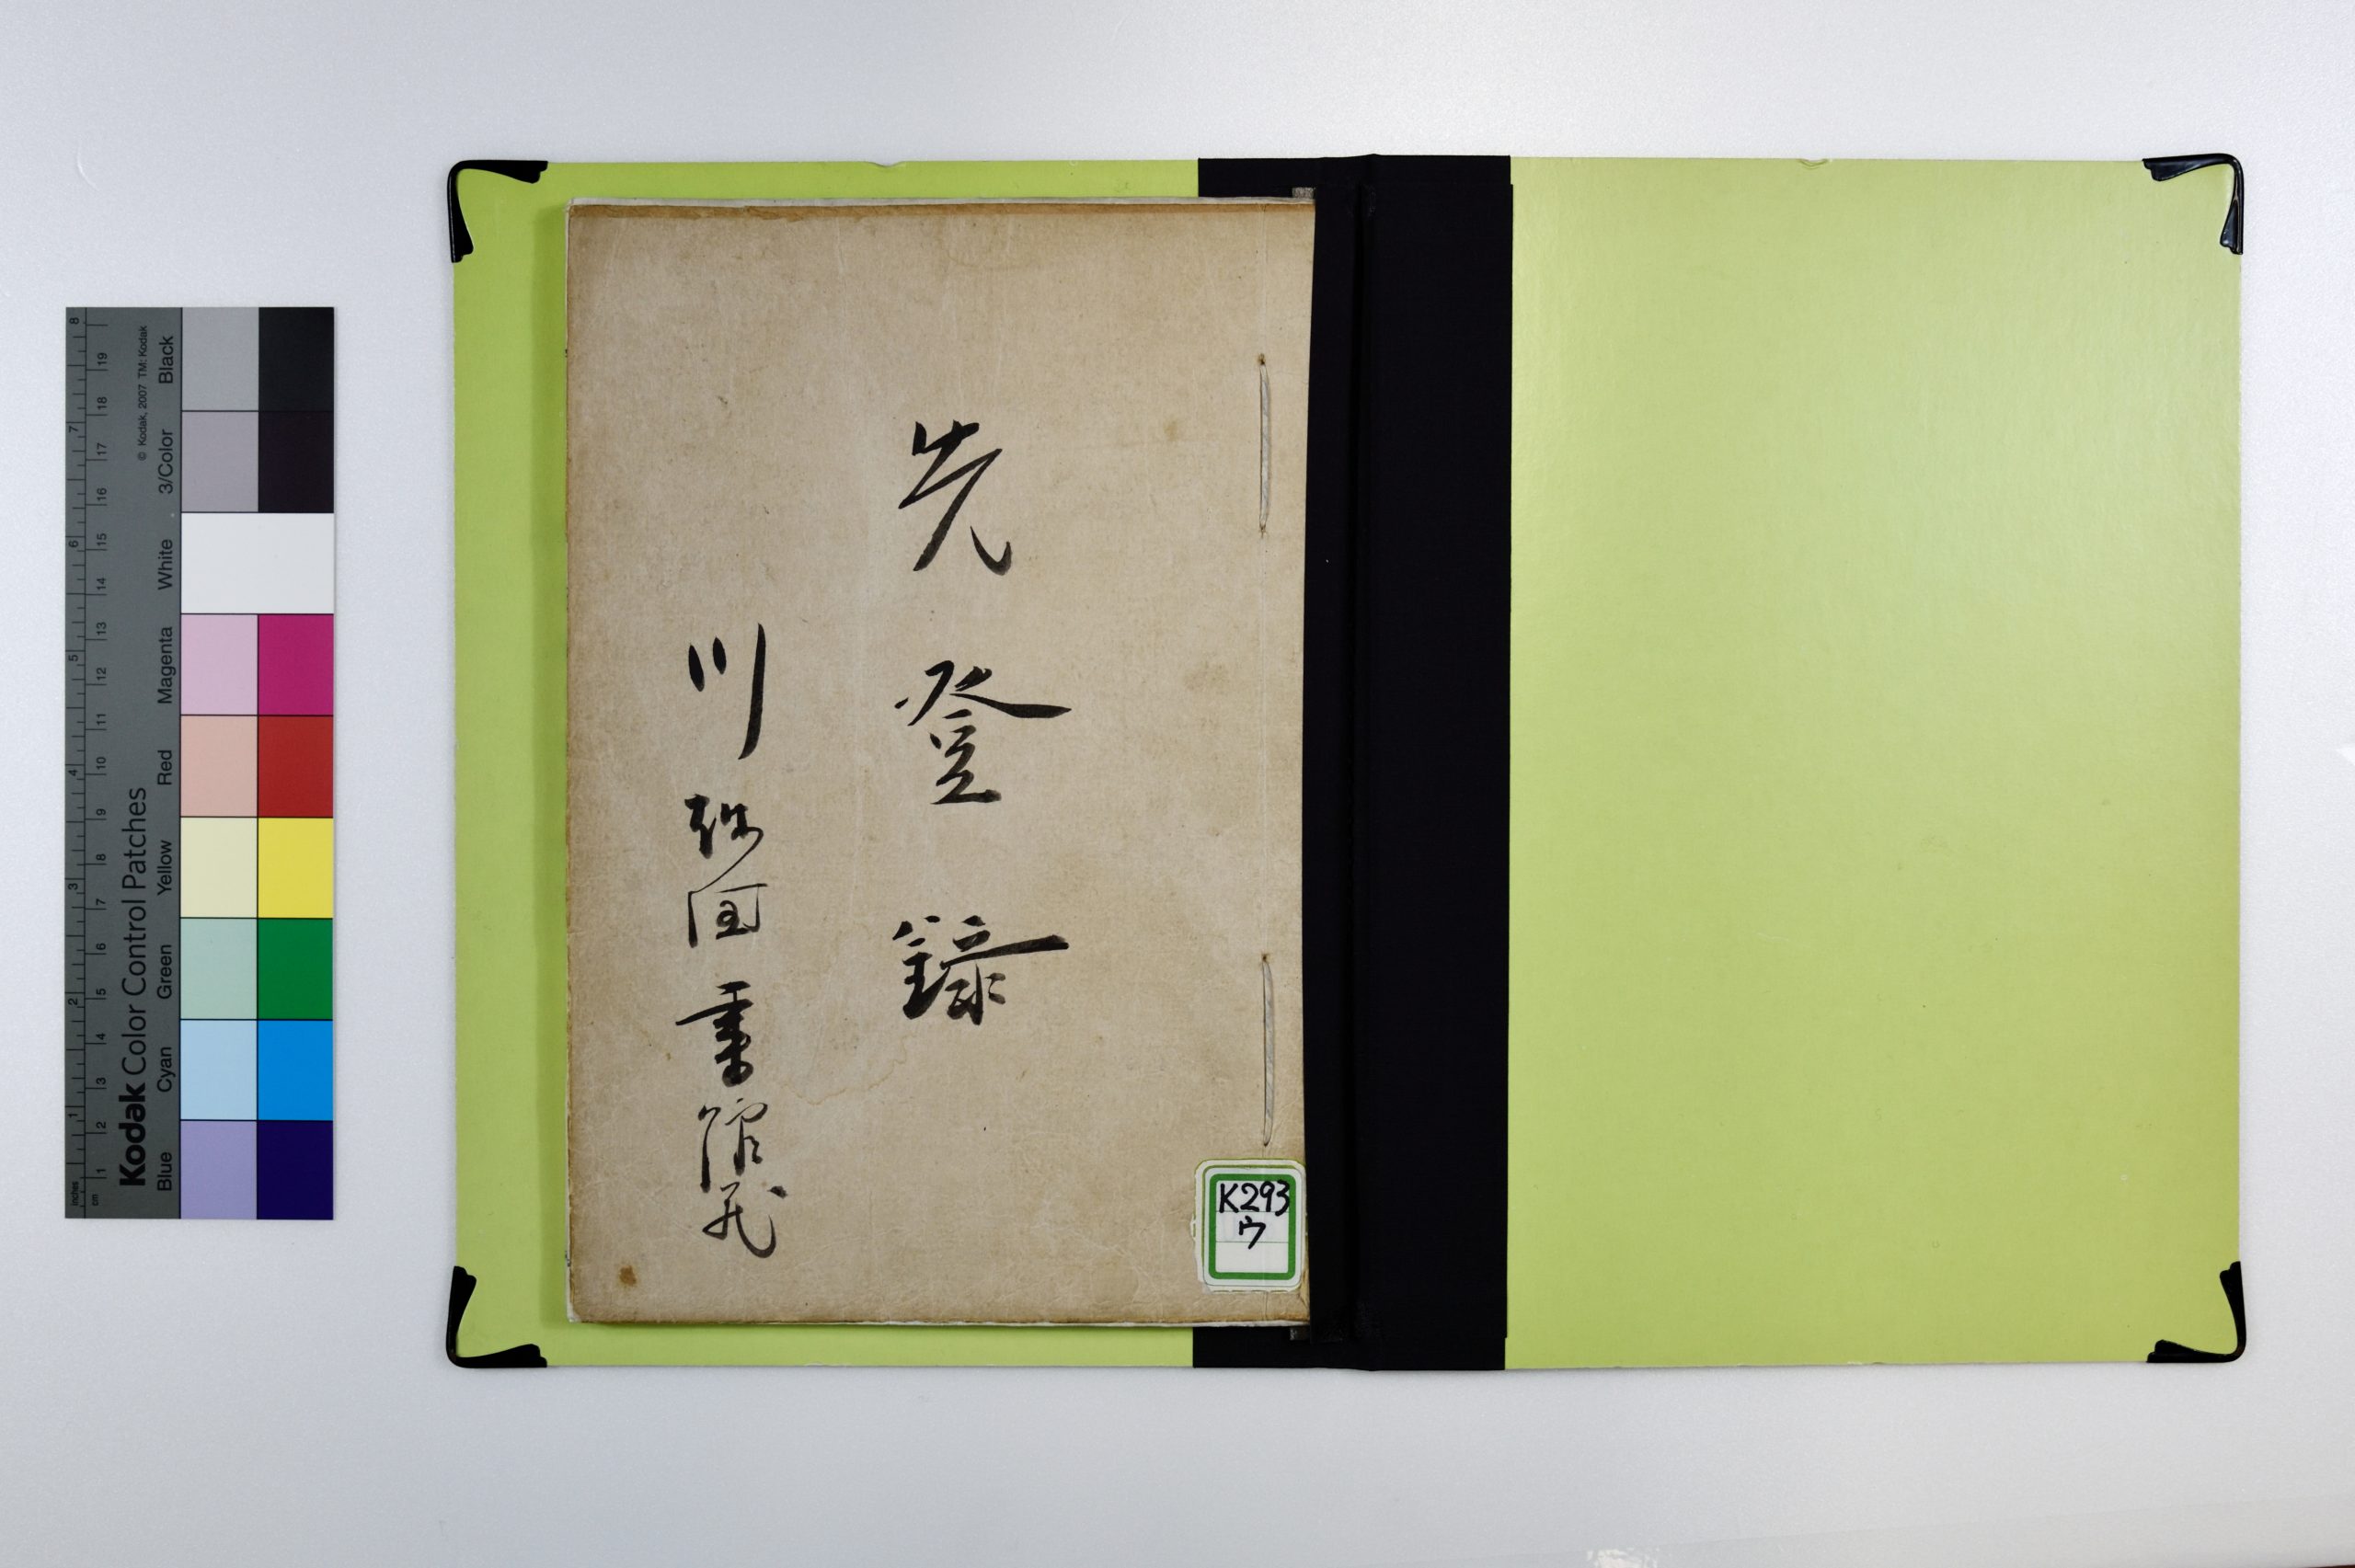 先登録
川弥国重
K293
ウ
Kodak Color Control Patches
© Kodak, 2007 TM: Kodak
Blue Cyan Green Yellow Red Magenta White 3/Color Black
inches 1 2 3 4 5 6 7 8
cm 1 2 3 4 5 6 7 8 9 10 11 12 13 14 15 16 17 18 19